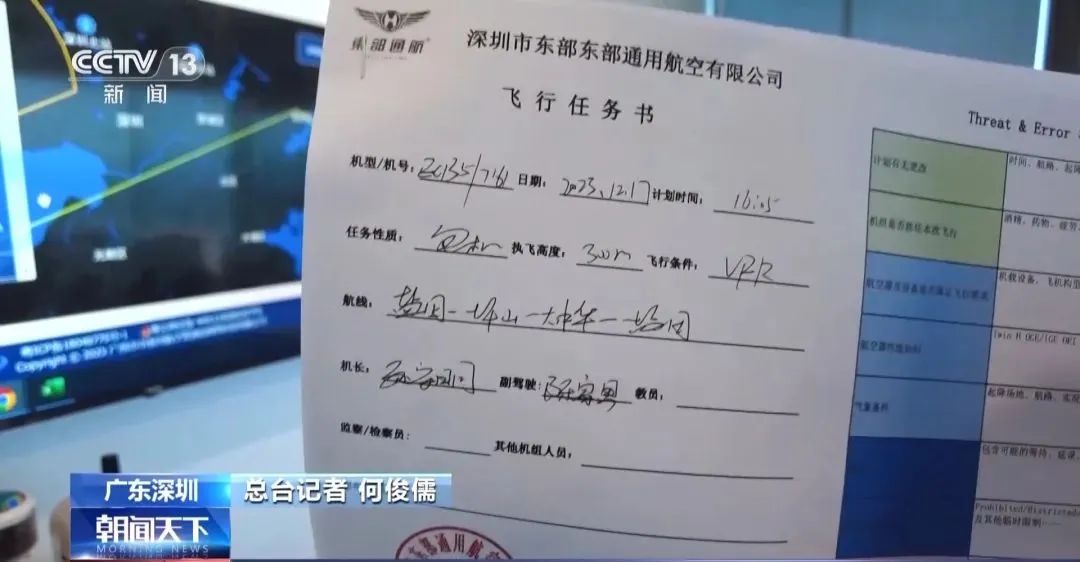 CCTV 13
新闻
東部通航
深圳市东部东部通用航空有限公司
飞行任务书
机型/机号: EC135/7181 日期: 2023.12.17 计划时间: 16:05
任务性质: 包机 执飞高度: 300m 飞行条件: VFR
航线: 盐田一坪山一大中华一盐田
机长: 副驾驶: 教员:
监察/检察员: 其他机组人员:
东部通用航空
Threat & Error
计划有无更改
时间、航路、起降
机组是否胜任本次飞行
酒精、药物、疲劳
机载设备、飞机构型
航空器性能如何
Twin H OGE/IGE OEI
气象条件
起降场地、航路、实况
包含可能的等待、延误
Prohibited/Ristricted
及其他临时限制……
Copyright © 2023
广东深圳 总台记者 何俊儒
朝闻天下
MORNING NEWS